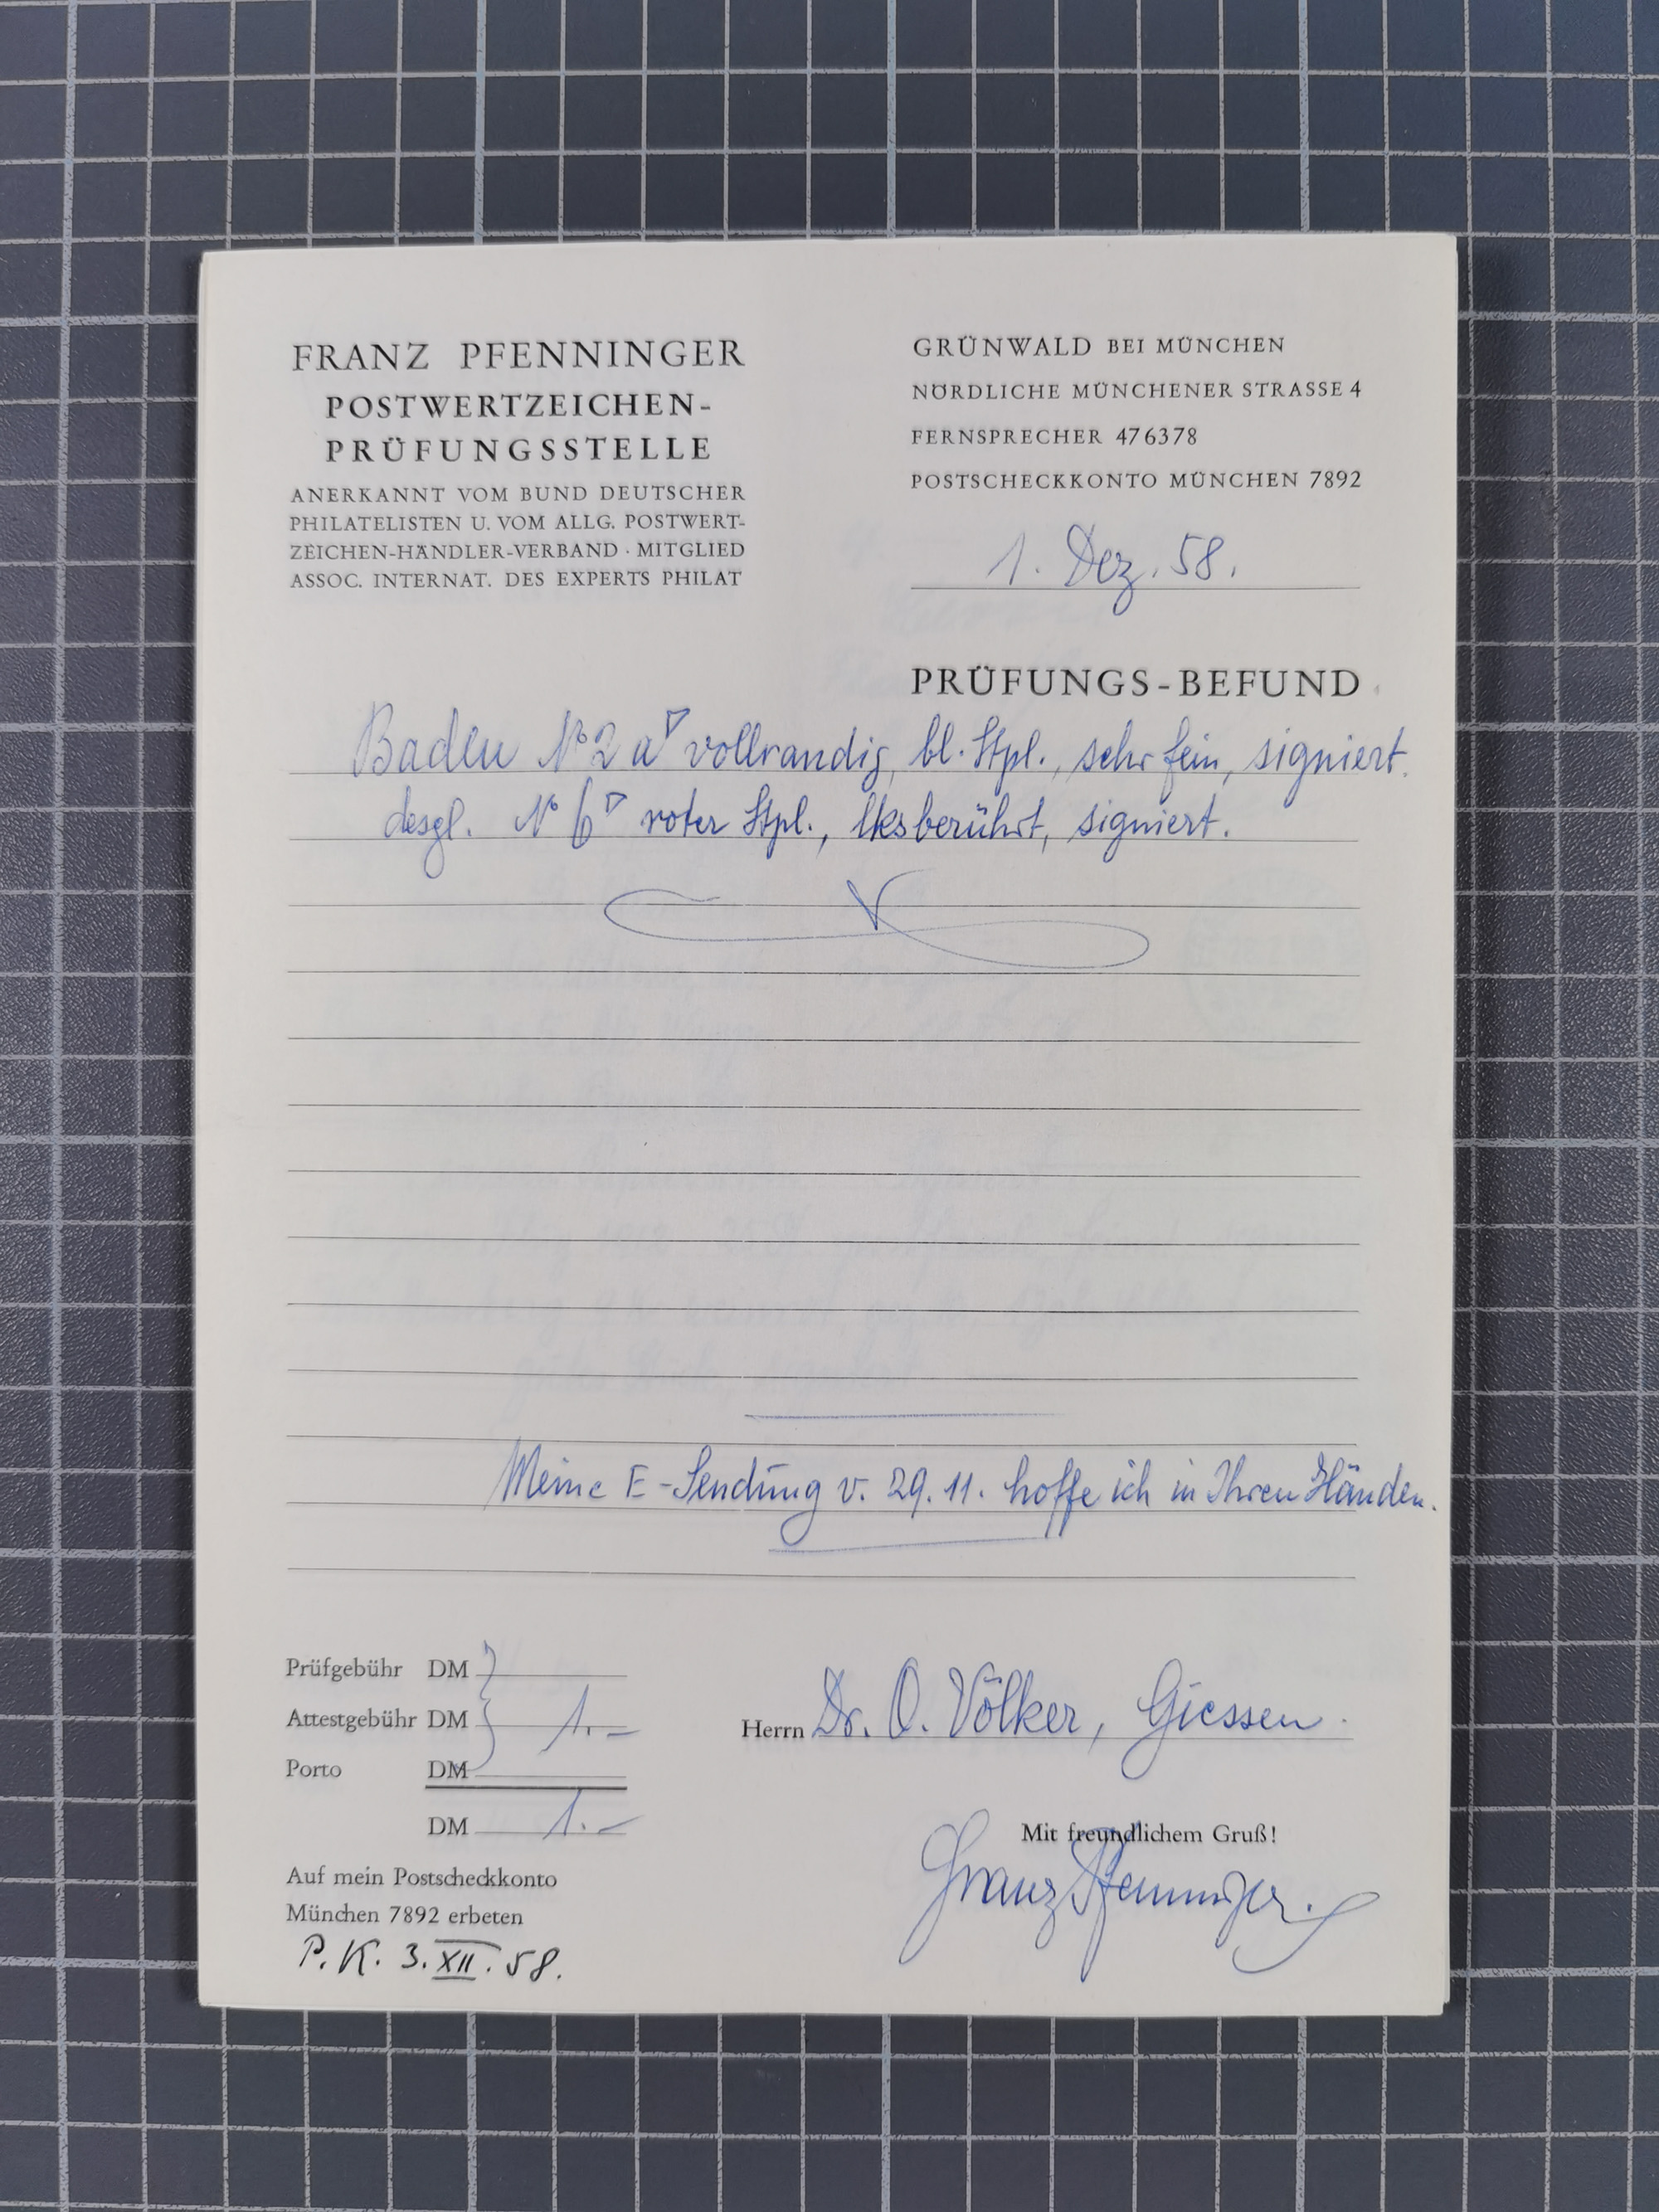 FRANZ PFENNINGER
POSTWERTZEICHEN-
PRÜFUNGSSTELLE
ANERKANNT VOM BUND DEUTSCHER
PHILATELISTEN U. VOM ALLG. POSTWERT-
ZEICHEN-HÄNDLER-VERBAND · MITGLIED
ASSOC. INTERNAT. DES EXPERTS PHILAT
GRÜNWALD BEI MÜNCHEN
NÖRDLICHE MÜNCHENER STRASSE 4
FERNSPRECHER 476378
POSTSCHECKKONTO MÜNCHEN 7892
1. Dez. 58.
PRÜFUNGS-BEFUND
Baden No 2 a vollrandig, bl. Stpl., sehr fein, signiert.
desgl. No 6 roter Stpl., lks berührt, signiert.
Meine E-Sendung v. 29.11. hoffe ich in Ihren Händen.
Prüfgebühr DM
Attestgebühr DM 1.-
Porto DM
DM 1.-
Auf mein Postscheckkonto
München 7892 erbeten
P.K. 3.XII.58.
Herrn Dr. O. Völker, Giessen.
Mit freundlichem Gruß!
Franz Pfenninger.